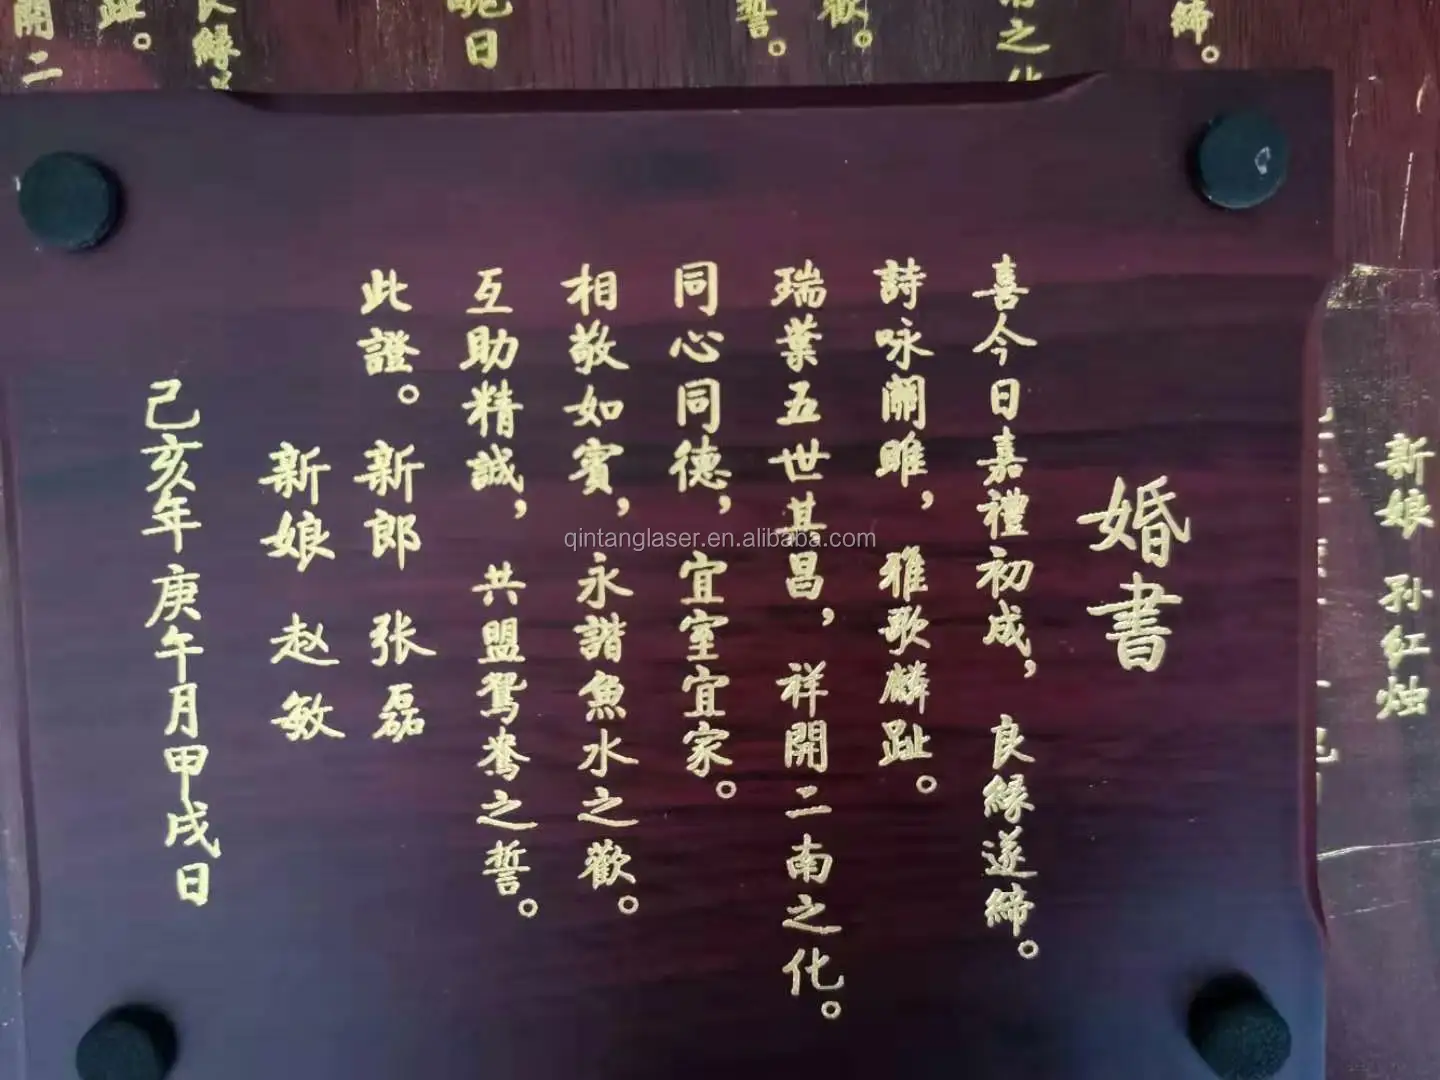 婚書
喜今日嘉禮初成，良緣遂締。
詩咏關雎，雅歌麟趾。
瑞葉五世其昌，祥開二南之化。
同心同德，宜室宜家。
相敬如賓，永諧魚水之歡。
互助精誠，共盟鴛鴦之誓。
此證。
新郎 张磊
新娘 赵敏
己亥年 庚午月甲戌日
新娘 孙红烛
締。
南之化
歡。
誓。
日
良緣
趾。
開二
qintanglaser.en.alibaba.com